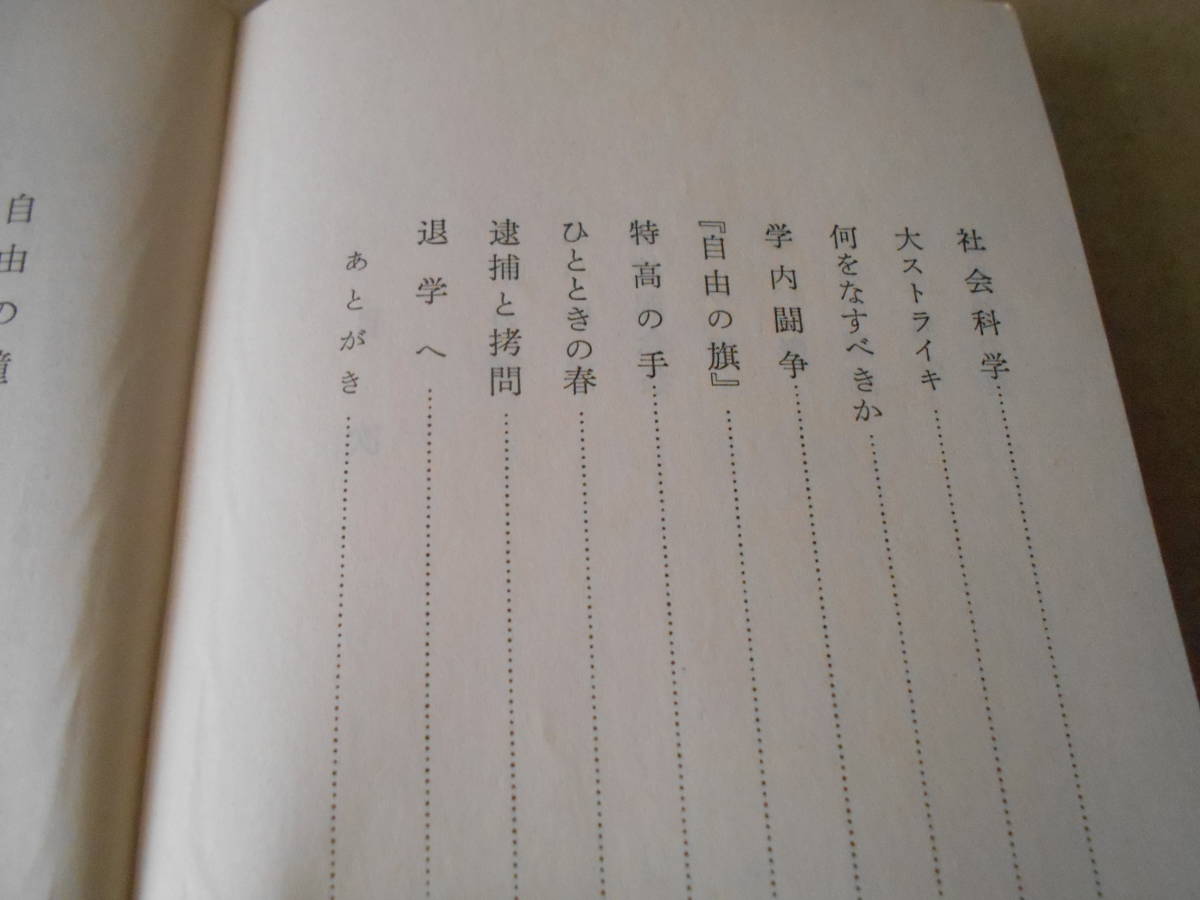 社会科学
大ストライキ
何をなすべきか
学内闘争
『自由の旗』
特高の手
ひとときの春
逮捕と拷問
退学へ
あとがき
自由の